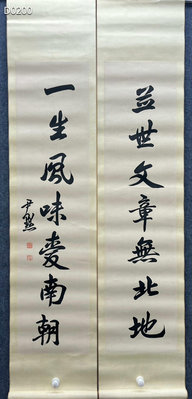 D0200
益世文章無北地
一生風味愛南朝
尹默